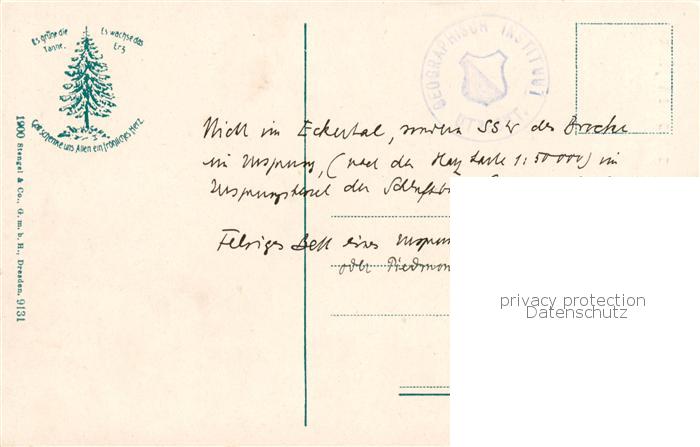 Es grüne die
Tanne.
Es wachse das
Erz
Gott schenke uns Allen ein fröhliches Herz.
1900 Stengel & Co., G. m. b. H., Dresden. 9131
GEOGRAPHISCH INSTITUUT
Nicht im Eckertal, sondern SSW des Brocken
im Ursprung, (nach der Harz Karte 1:50000) im
der
Felsiges Bett eines
oder
privacy protection
Datenschutz